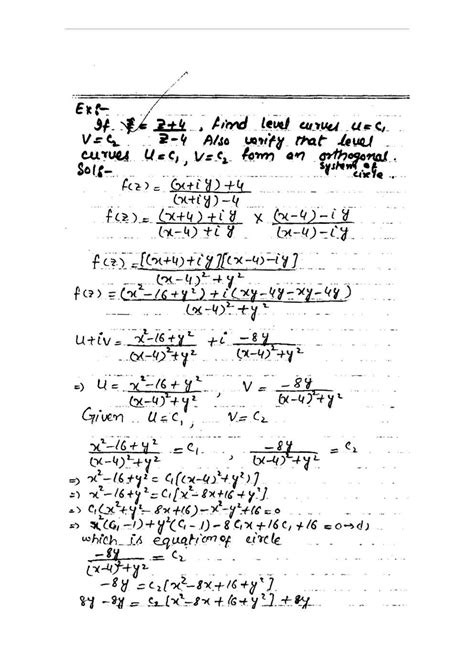 Ex:-
If F = z+4/z-4, Find level curves u=c₁
V=c₂ Also verify that level
curves u=c₁, v=c₂ form an orthogonal
system of circle.
Sol:-
f(z) = (x+iy)+4/(x+iy)-4
f(z) = (x+4)+iy/(x-4)+iy × (x-4)-iy/(x-4)-iy
f(z) = [(x+4)+iy][(x-4)-iy]/(x-4)²+y²
f(z) = (x²-16+y²)+i(xy-4y-xy-4y)/(x-4)²+y²
u+iv = x²-16+y²/(x-4)²+y² + i -8y/(x-4)²+y²
=> u = x²-16+y²/(x-4)²+y², V = -8y/(x-4)²+y²
Given u=c₁, v=c₂
x²-16+y²/(x-4)²+y² = c₁, -8y/(x-4)²+y² = c₂
=> x²-16+y² = c₁[(x-4)²+y²]
=> x²-16+y² = c₁[x²-8x+16+y²]
=> c₁(x²+y²-8x+16)-x²-y²+16=0
=> x²(c₁-1)+y²(c₁-1)-8c₁x+16c₁+16=0→(1)
which is equation of circle
-8y/(x-4)²+y² = c₂
-8y = c₂[x²-8x+16+y²]
8y-8y = c₂[x²-8x+16+y²]+8y